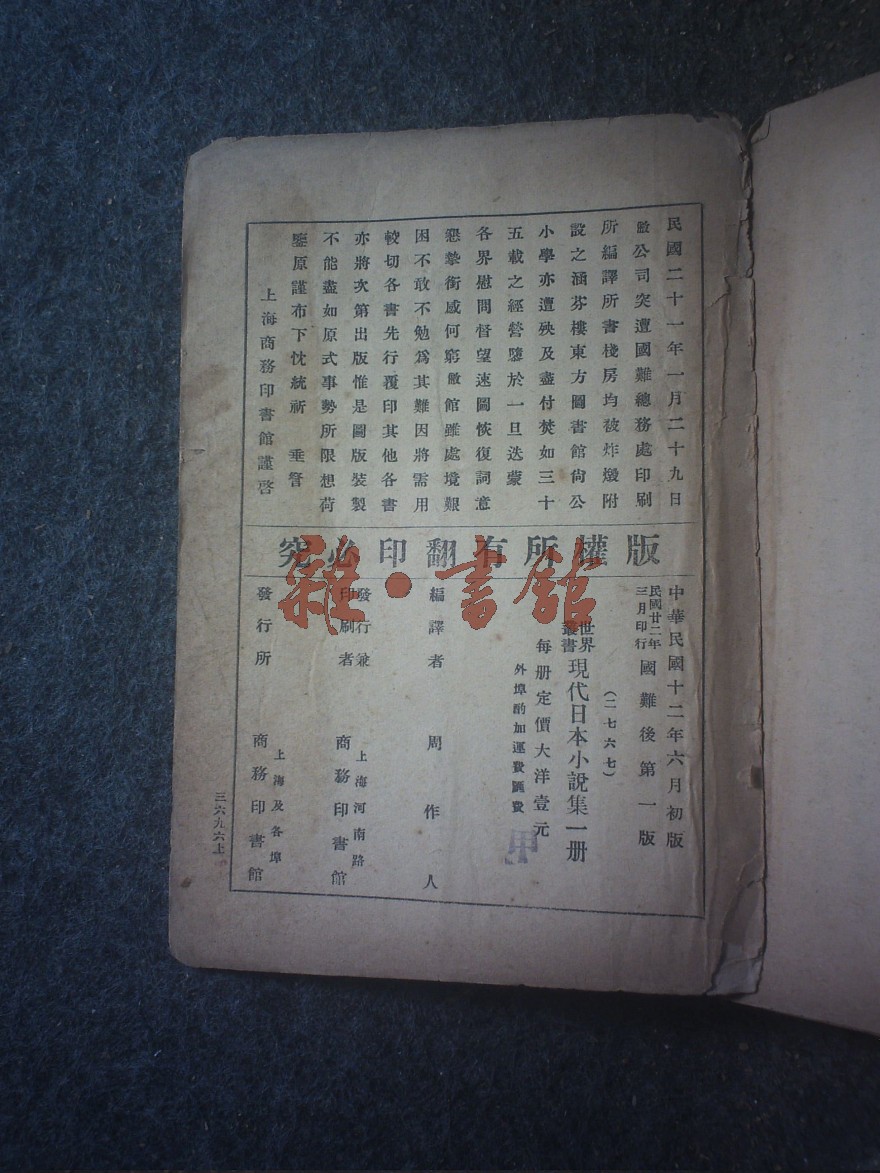 民國二十一年一月二十九日
敝公司突遭國難總務處印刷
所編譯所書棧房均被炸燬附
設之涵芬樓東方圖書館尚公
小學亦遭殃及盡付焚如三十
五載之經營隳於一旦迭蒙
各界慰問督望速圖恢復詞意
懇摯銜感何窮敝館雖處境艱
困不敢不勉爲其難因將需用
較切各書先行覆印其他各書
亦將次第出版惟是圖版裝製
不能盡如原式事勢所限想荷
鑒原謹布下忱統祈 垂詧
上海商務印書館謹啓
版權所有翻印必究
中華民國十二年六月初版
民國廿二年三月印行 國難後第一版
（二七六七）
世界叢書 現代日本小說集一册
每册定價大洋壹元
外埠酌加運費匯費
甲
編譯者 周作人
發行兼印刷者 上海河南路 商務印書館
發行所 上海及各埠 商務印書館
三六九六上
雜·書館